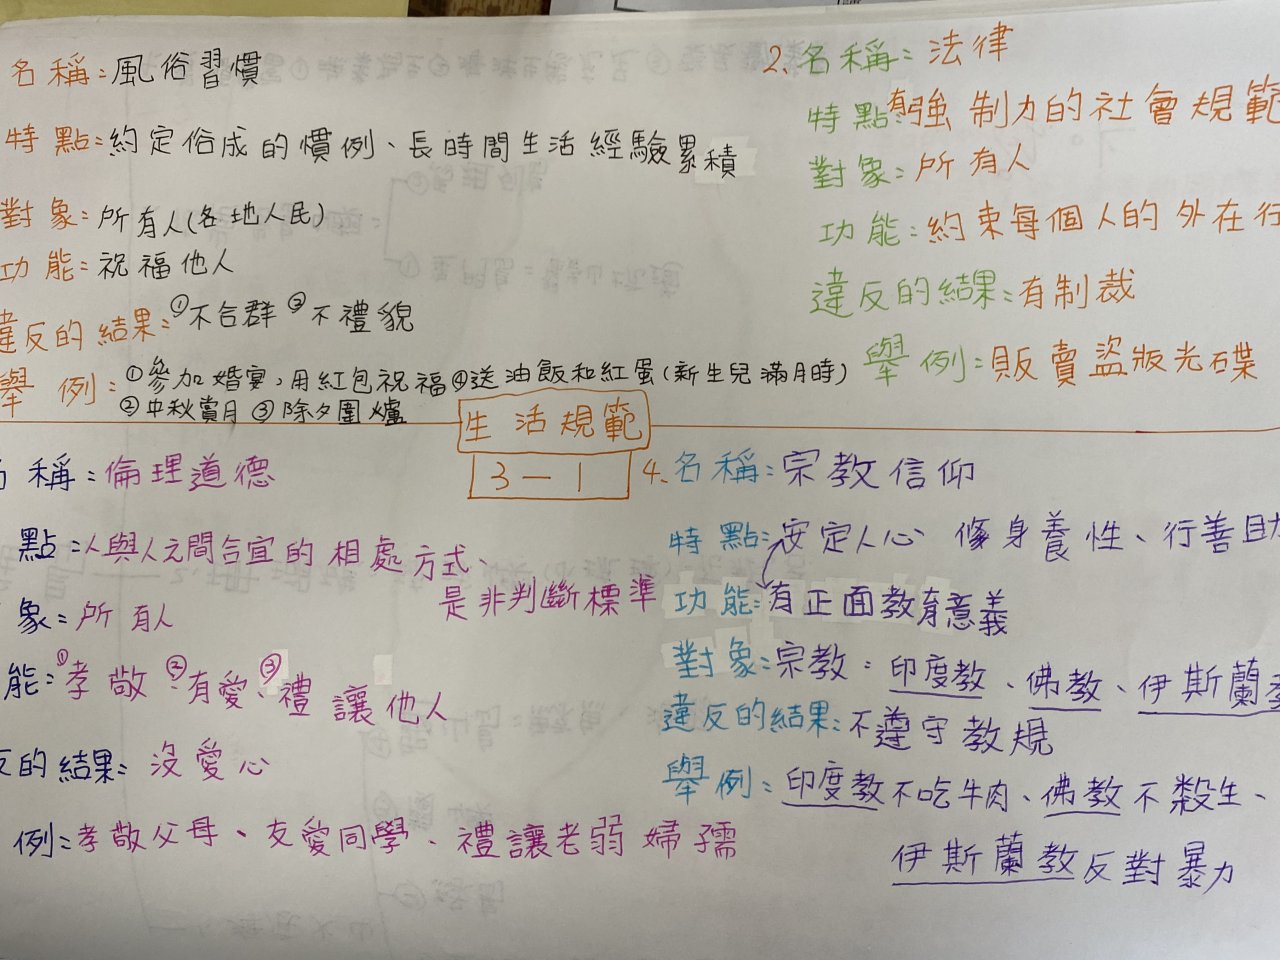 名稱:風俗習慣
特點:約定俗成的慣例、長時間生活經驗累積
對象:所有人(各地人民)
功能:祝福他人
違反的結果:①不合群 ②不禮貌
舉例:①參加婚宴,用紅包祝福④送油飯和紅蛋(新生兒滿月時)
②中秋賞月 ③除夕圍爐
2.名稱:法律
特點:有強制力的社會規範
對象:所有人
功能:約束每個人的外在行
違反的結果:有制裁
舉例:販賣盜版光碟
生活規範
3-1
名稱:倫理道德
點:人與人之間合宜的相處方式、
是非判斷標準
象:所有人
能:①孝敬②有愛、③禮讓他人
反的結果:沒愛心
例:孝敬父母、友愛同學、禮讓老弱婦孺
4.名稱:宗教信仰
特點:安定人心 修身養性、行善助
功能:有正面教育意義
對象:宗教:印度教、佛教、伊斯蘭教
違反的結果:不遵守教規
舉例:印度教不吃牛肉、佛教不殺生、
伊斯蘭教反對暴力